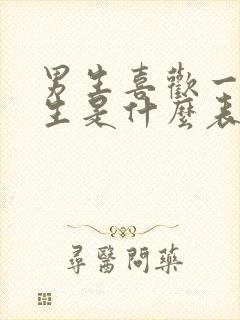 男生喜歡一
生是什麼表
尋醫問藥